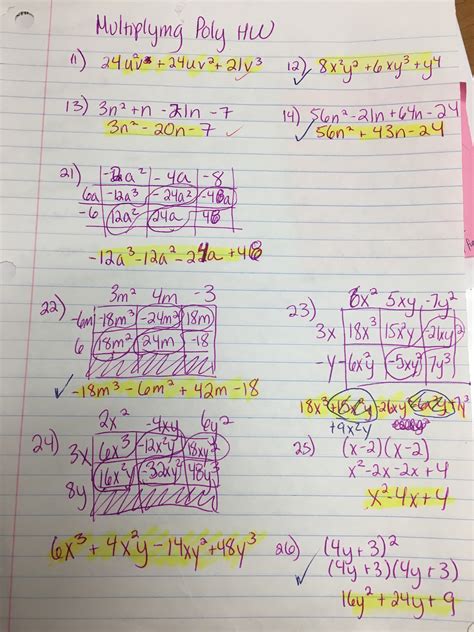 Multiplying Poly HW
11) 24uv³ + 24uv² + 21v³
12) 8x²y² + 6xy³ + y⁴
13) 3n² + n - 21n - 7
3n² - 20n - 7
14) 56n² - 21n + 64n - 24
56n² + 43n - 24
21) -2a² -4a -8
6a -12a³ -24a² -48a
-6 12a² 24a 48
-12a³ - 12a² - 24a + 48
22) 3m² 4m -3
-6m -18m³ -24m² 18m
6 18m² 24m -18
-18m³ - 6m² + 42m - 18
23) 6x² 5xy -7y²
3x 18x³ 15x²y -21xy²
-y -6x²y -5xy² 7y³
18x³ + 15x²y - 26xy² - 6x²y + 7y³
+9x²y
24) 2x² -4xy 6y²
3x 6x³ -12x²y 18xy²
8y 16x²y -32xy² 48y³
6x³ + 4x²y - 14xy² + 48y³
25) (x-2)(x-2)
x² - 2x - 2x + 4
x² - 4x + 4
26) (4y+3)²
(4y+3)(4y+3)
16y² + 24y + 9